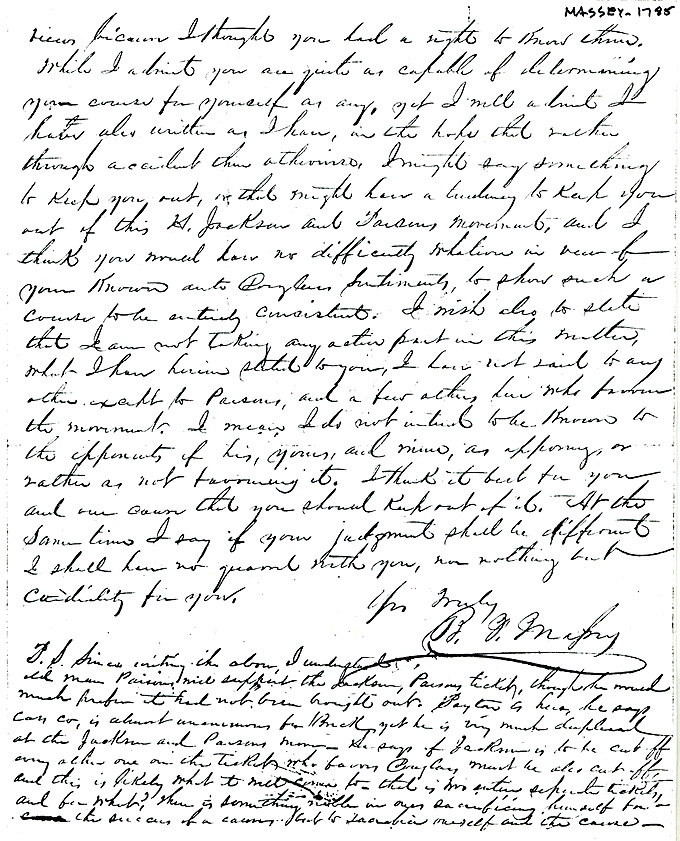 MASSEY-1785
views because I thought you had a right to know them.
While I admit you are quite as capable of determining
your course for yourself as any, yet I will admit I
have also written as I have, in the hope that rather
through accident than otherwise, I might say something
to keep you out, or that might have a tendency to keep you
out of this H. Jackson and Parsons movement, and I
think you would have no difficulty whatever in view of
your known anti Douglas Sentiments, to show such a
course to be entirely consistent. I wish also to state
that I am not taking any active part in this matter,
what I have herein stated to you, I have not said to any
other except to Parsons, and a few others here who favour
the movement. I mean I do not intend to be known to
the opponents of his, yours, and mine, as opposing, or
rather as not favouring it. I think it best for you
and our cause that you should keep out of it. At the
same time I say if your judgment shall be different
I shall have no quarrel with you, nor nothing but
cordiality for you.
Yrs Truly
B. F. Massey
P.S. Since writing the above, I understand
old man Parsons will support the Jackson, Parsons ticket, though he would
much prefer it had not been brought out. Payton is here, he says
Cass co, is almost unanimous for Breck, yet he is very much displeased
at the Jackson and Parsons move He says if Jackson is to be cut off
every other one on the ticket who favors Douglas must be also cut off,
and this is likely what it will come to that is two entire separate tickets,
and for what? there is something in ones sacrificing himself for
the success of a cause, but to sacrifice oneself and the cause